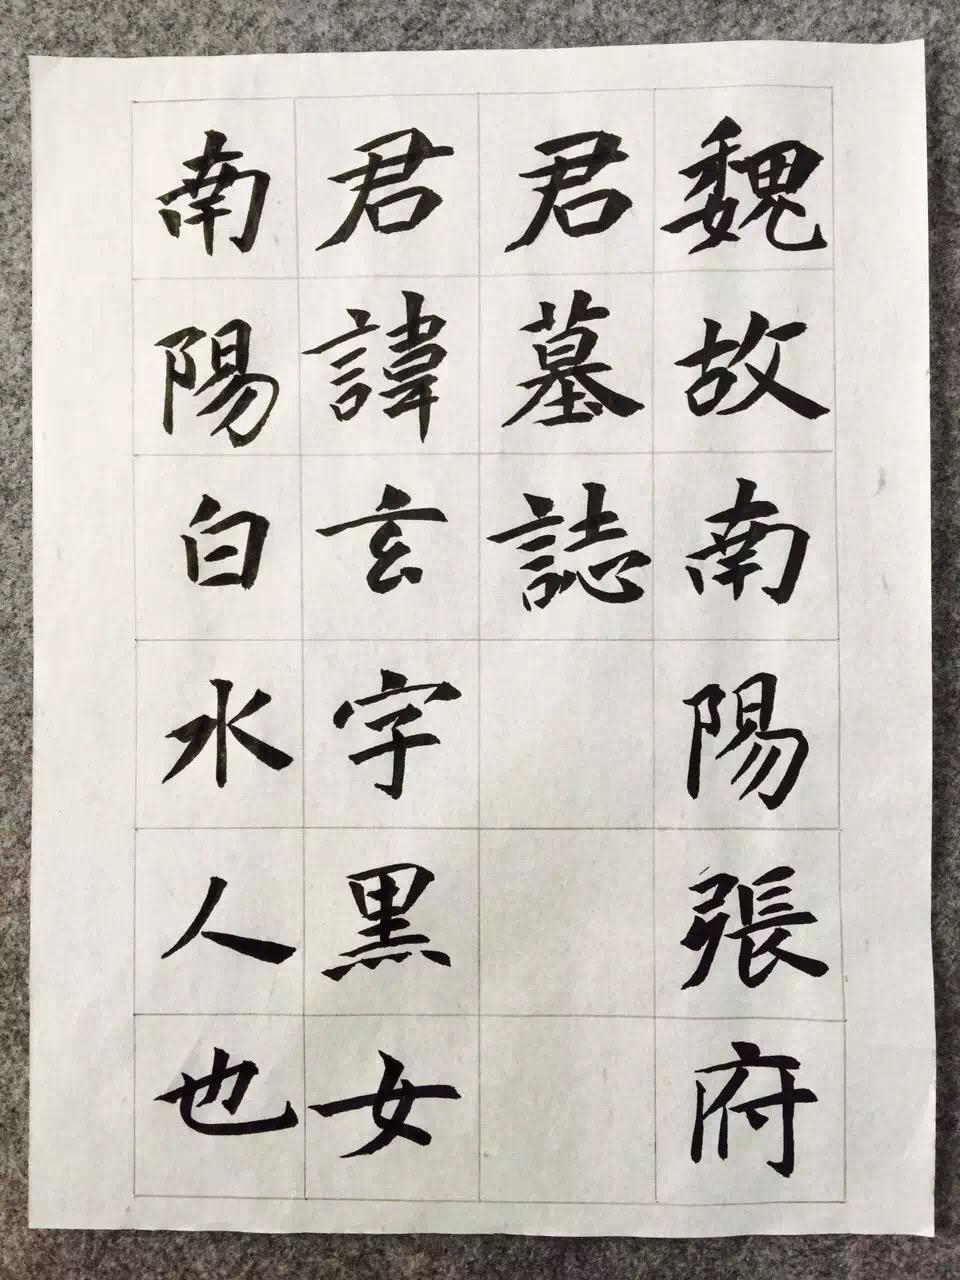 魏故南陽張府
君墓誌
君諱玄字黑女
南陽白水人也